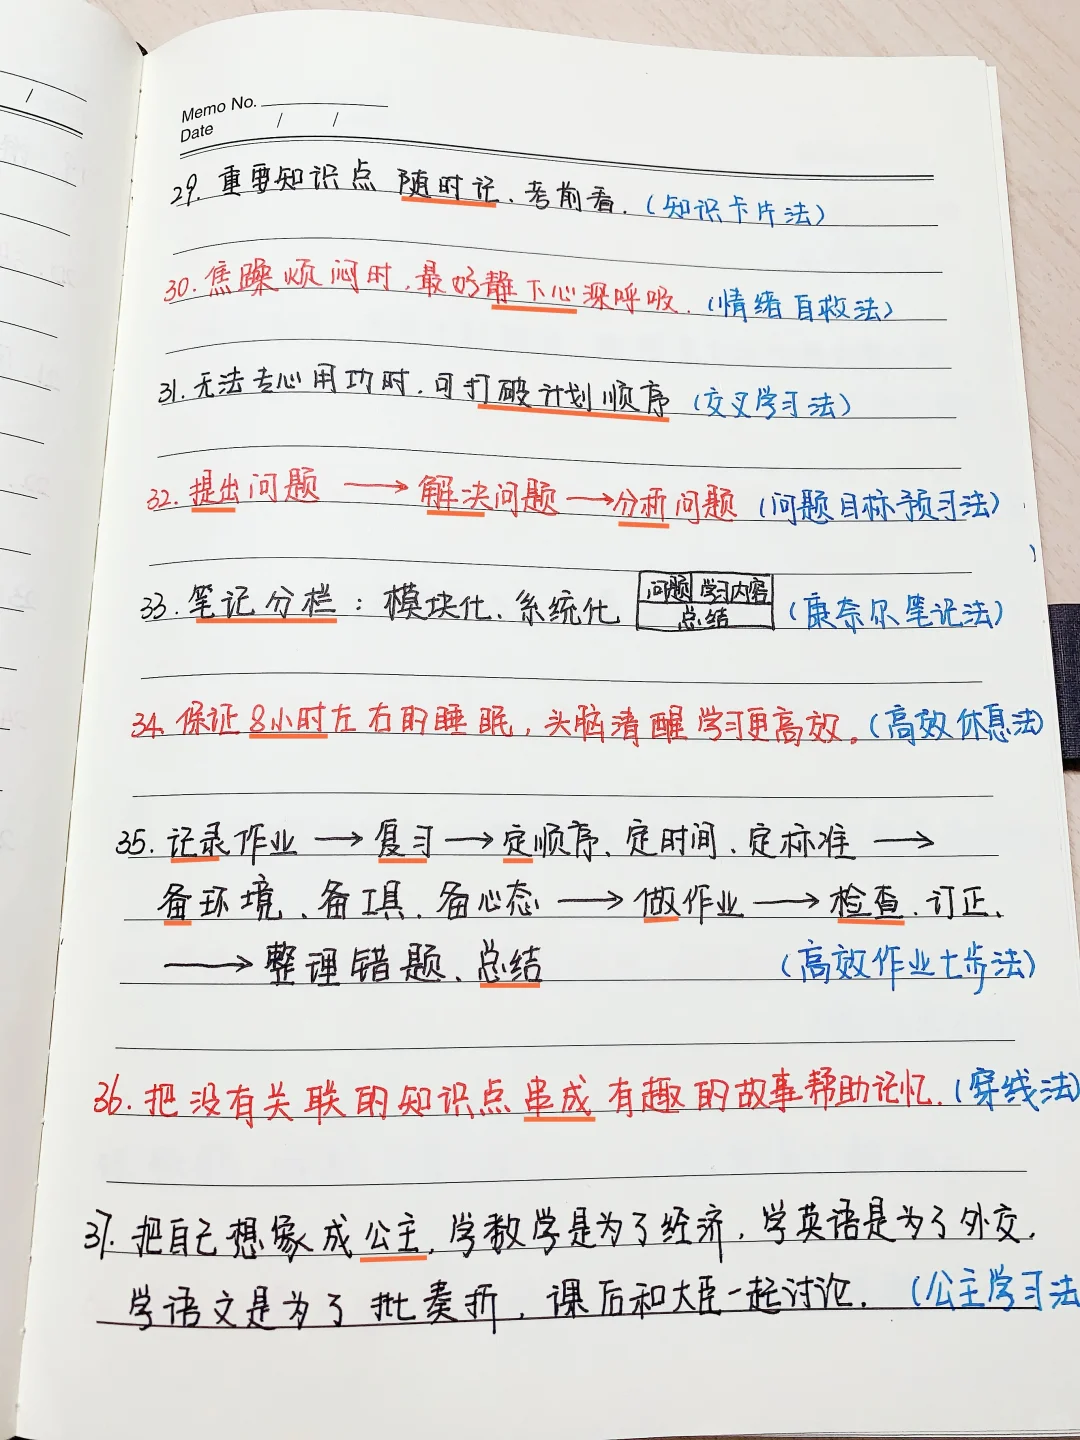 Memo No.
Date / /
29. 重要知识点 随时记、考前看.(知识卡片法)
30. 焦躁烦闷时,最好静下心深呼吸.(情绪自救法)
31. 无法专心用功时,可打破计划顺序(交叉学习法)
32. 提出问题 → 解决问题 → 分析问题(问题目标预习法)
33. 笔记分栏:模块化、系统化 问题 学习内容 总结(康奈尔笔记法)
34. 保证8小时左右的睡眠,头脑清醒学习更高效。(高效休息法)
35. 记录作业 → 复习 → 定顺序、定时间、定标准 →
备环境、备工具、备心态 → 做作业 → 检查、订正、
→ 整理错题、总结 (高效作业七步法)
36. 把没有关联的知识点串成有趣的故事帮助记忆.(穿线法)
37. 把自己想象成公主,学数学是为了经济,学英语是为了外交,
学语文是为了批奏折,课后和大臣一起讨论.(公主学习法